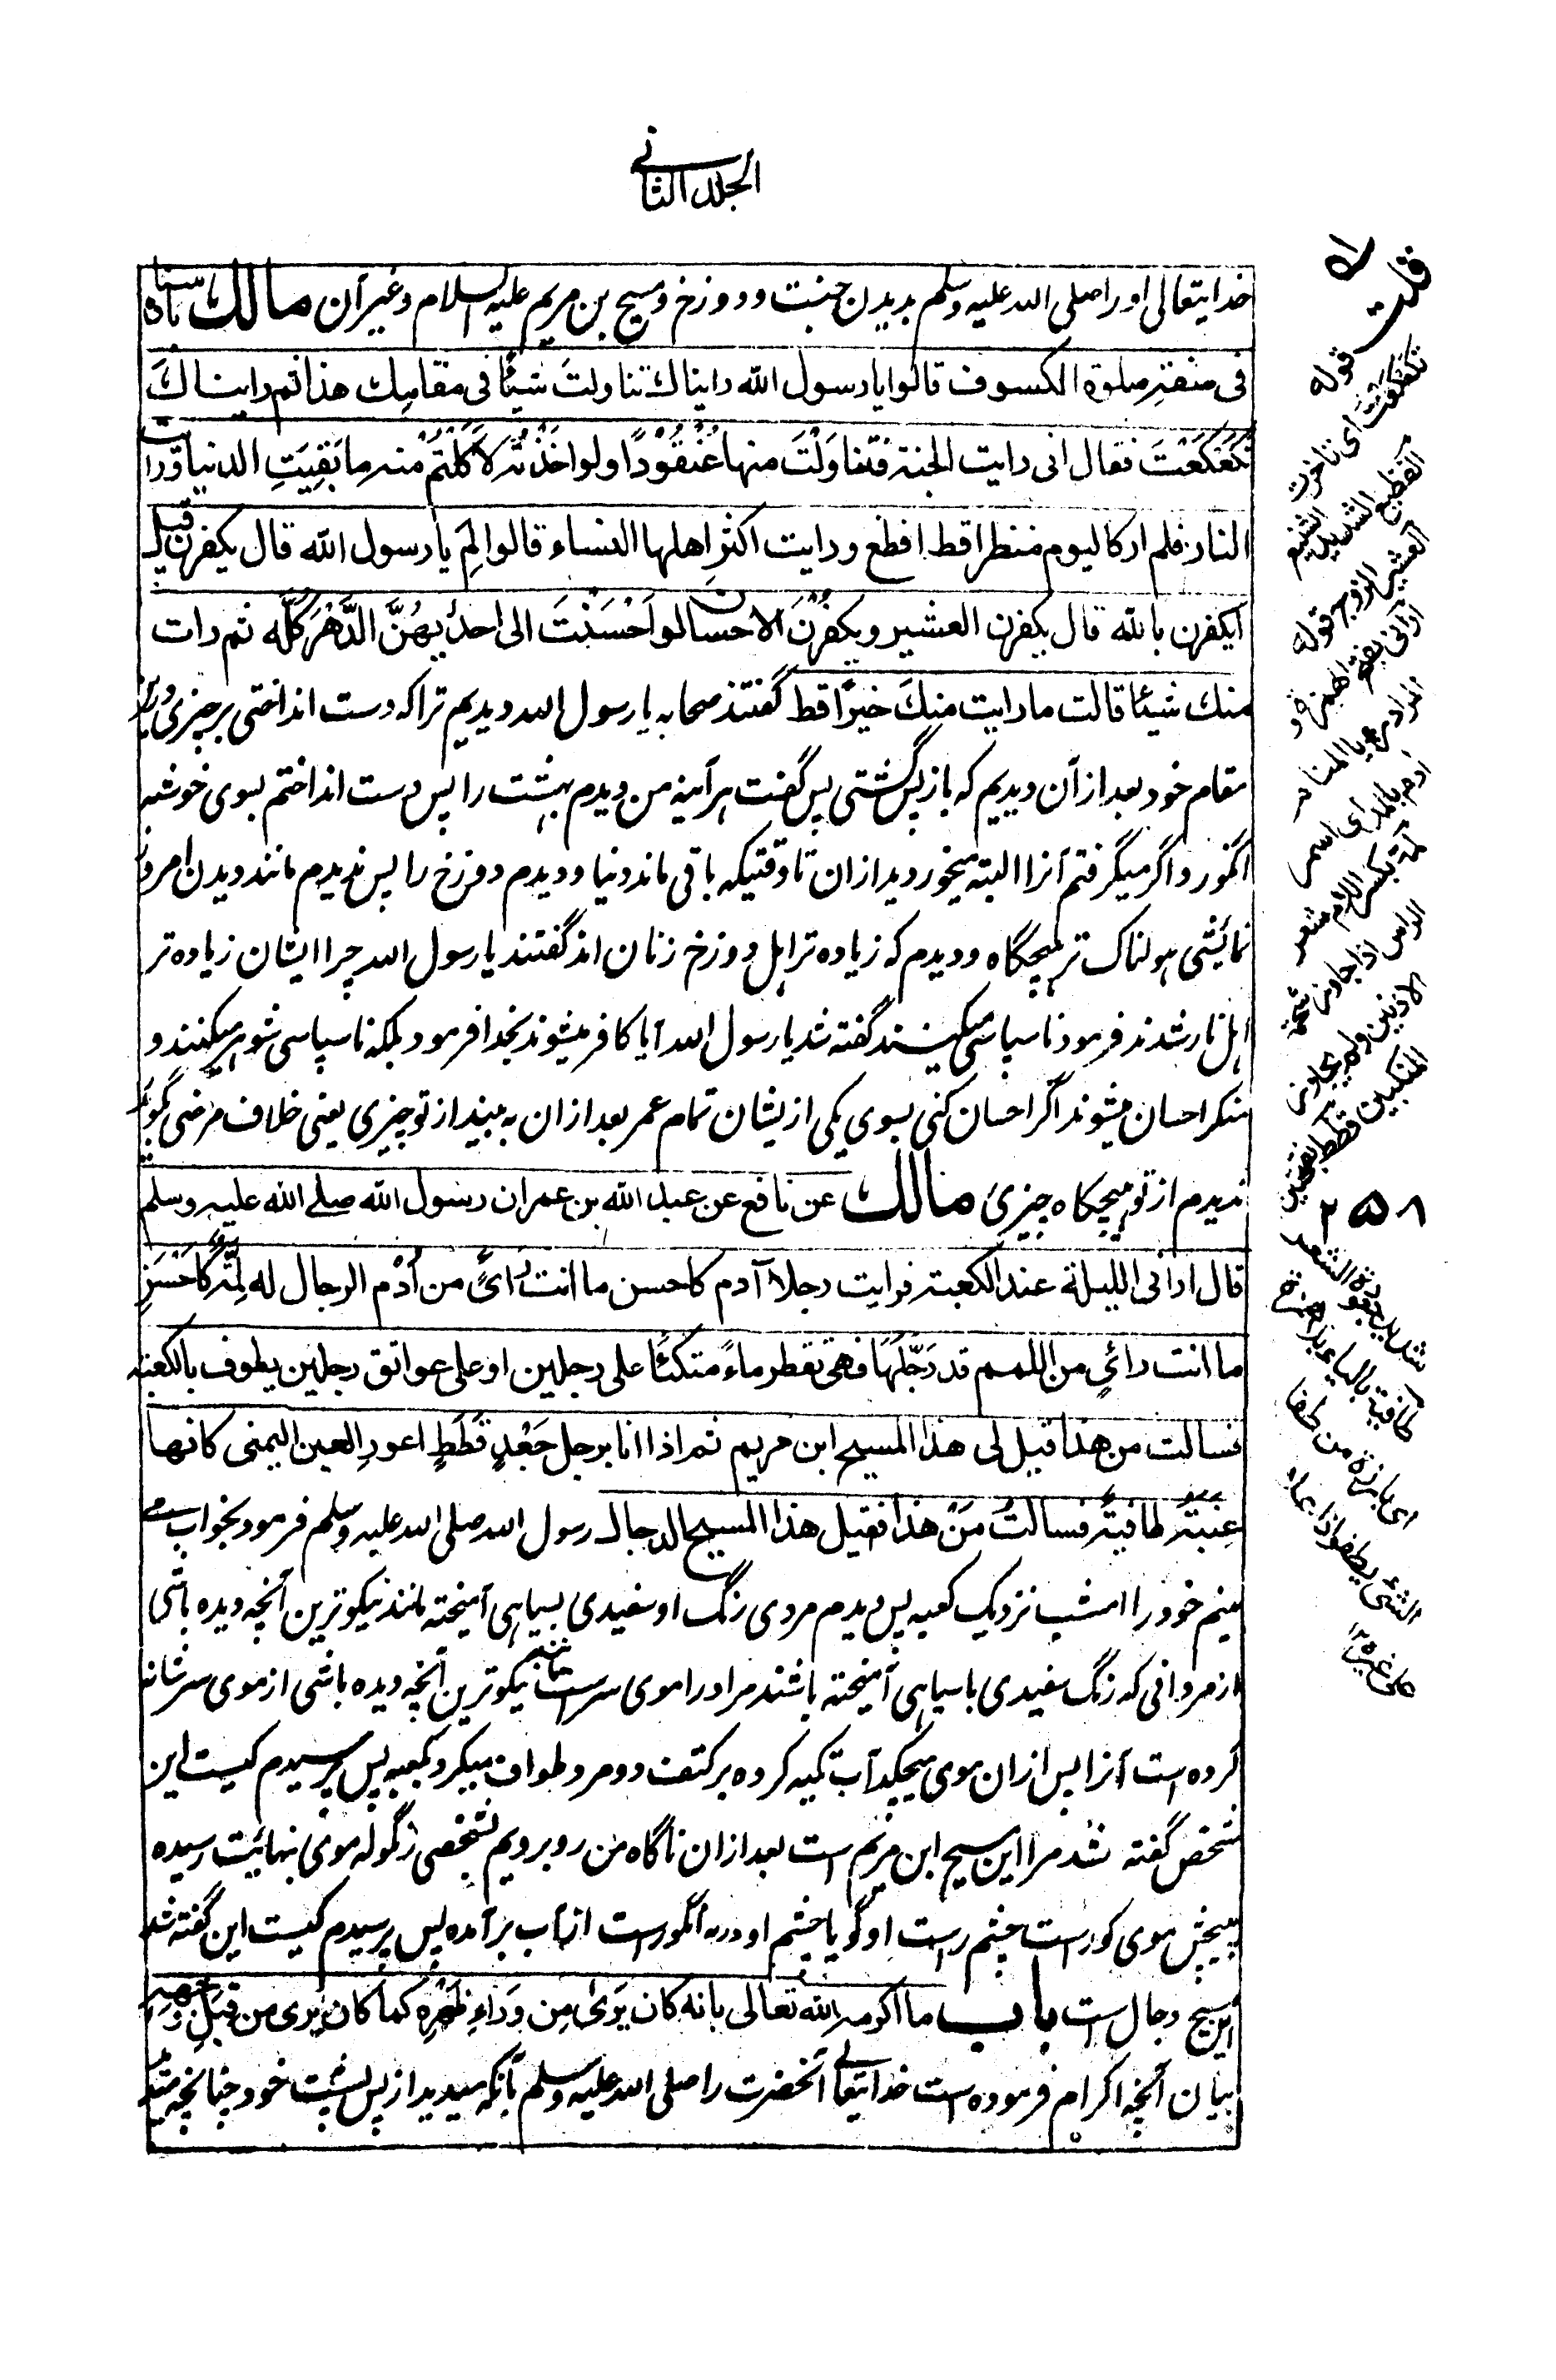 الجلد الثانی
خدایتعالی اورا صلی الله علیه وسلم بدیدن جنت ودوزخ ومسیح بن مریم علیه السلام وغیر آن مالك باسناده
فی صفة صلوة الکسوف قالوا یا رسول الله رایناك تناولتَ شیئًا فی مقامِك هذا ثم رایناكَ
تَکَعْکَعْتَ فقال انی رایت الجنة فتناوَلْتُ منها عُنْقُوْدًا ولو اخَذْتُه لَاَکَلْتُمْ منه ما بَقِیَتِ الدنیا ورایت
النار فلم ار کالیوم منظرا قط افظع ورایت اکثرِ اهلها النساء قالوا لِمَ یا رسول الله قال بکفرهن قیل
ایکفرن بالله قال یکفرن العشیر ویکفُرْنَ الاحسان لو اَحْسَنْتَ الی احدٰیهُنَّ الدَّهْرَ کُلَّه ثم رات
منك شیئا قالت ما رایت منكَ خیرًا قط گفتند صحابه یا رسول الله دیدیم ترا که دست انداختی بر چیزی در این
مقام خود بعد از آن دیدیم که باز پس گشتی پس گفت هر آینه من دیدم بهشت را پس دست انداختم بسوی خوشه
انگور واگر میگرفتم آنرا البته میخوردید ازان تا وقتیکه باقی ماند دنیا ودیدم دوزخ را پس ندیدم مانند دیدن امروز
نمائشی هولناک تر هیچگاه ودیدم که زیاده تر اهل دوزخ زنان اند گفتند یا رسول الله چرا ایشان زیاده تر
اهل نار شدند فرمود ناسپاسی میکنند گفته شد یا رسول الله آیا کافر میشوند بخدا فرمود بلکه ناسپاسی شوهر میکنند و
منکر احسان میشوند اگر احسان کنی بسوی یکی ازیشان تمام عمر بعد ازان به بیند از تو چیزی یعنی خلاف مرضی گوید
ندیدم از تو هیچگاه چیزی مالك عن نافع عن عبد الله بن عمر ان رسول الله صلے الله علیه وسلم
قال ارانی اللیلة عند الکعبة فرایت رجلا آدم کاحسن ما انت رائیٍ من اُدْم الرجال له لِمَّةٌ کاَحْسَنِ
ما انت رائیٍ من اللمم قد رَجَّلَهَا فهی تقطر ماءً متکئًا علی رجلین او علی عواتق رجلین یطوف بالکعبة
فسالت من هذا قیل لی هذا المسیح ابن مریم ثم اذا انا برجل جَعْدٍ قَطَطٍ اعورِ العین الیمنی کانها
عِنَبَةٌ طافیةٌ فسالتُ مَنْ هذا فقیل هذا المسیح الدجال رسول الله صلی الله علیه وسلم فرمود بخواب می
بینم خود را امشب نزدیک کعبه پس دیدم مردی رنگ او سفیدی بسیاهی آمیخته مانند نیکوترین آنچه دیده باشی
از مردانی که رنگ سفیدی با سیاهی آمیخته باشند مر اورا موی سرست مانند نیکوترین آنچه دیده باشی از موی سر شانه
کرده است آنرا پس ازان موی میچکد آب تکیه کرده بر کتف دو مرد طواف میکرد بکعبه پس پرسیدم کیست این
شخص گفته شد مرا این مسیح ابن مریم است بعد ازان ناگاه من روبرویم بشخصی زنگوله موی بنهایت رسیده
پیچش موی کورست چشم راست او گویا چشم او دانه انگورست از آب برآمده پس پرسیدم کیست این گفته شد
این مسیح دجال است باب ما اکرمه الله تعالی بانه کان یَرٰی مِن وَراءِ ظَهْرِه کما کان یری من قِبَلِ وَجْهِه
بیان آنچه اکرام فرموده است خدایتعالی آنحضرت را صلی الله علیه وسلم بآنکه میدید از پس پشت خود چنانچه میدید
قلت
قوله
تکعکعت ای تاخرت
الفظیع الشدید الشنیع
العشیر الزوج قوله
ارانی بفتح الهمزة و
المراد رویا المنام
آدم بالمد ای اسمر
لمة بکسر اللام شعر
الراس اذا جاوز شحمة
الاذنین ولم یجاوز
المنکبین قطط بفتحتین
۲۵۸
شدید جعودة الشعر
طافیة بالیاء بلا همزة
ای بارزة من طفا
الشئ یطفو اذا علا
علی غیره ۱۲